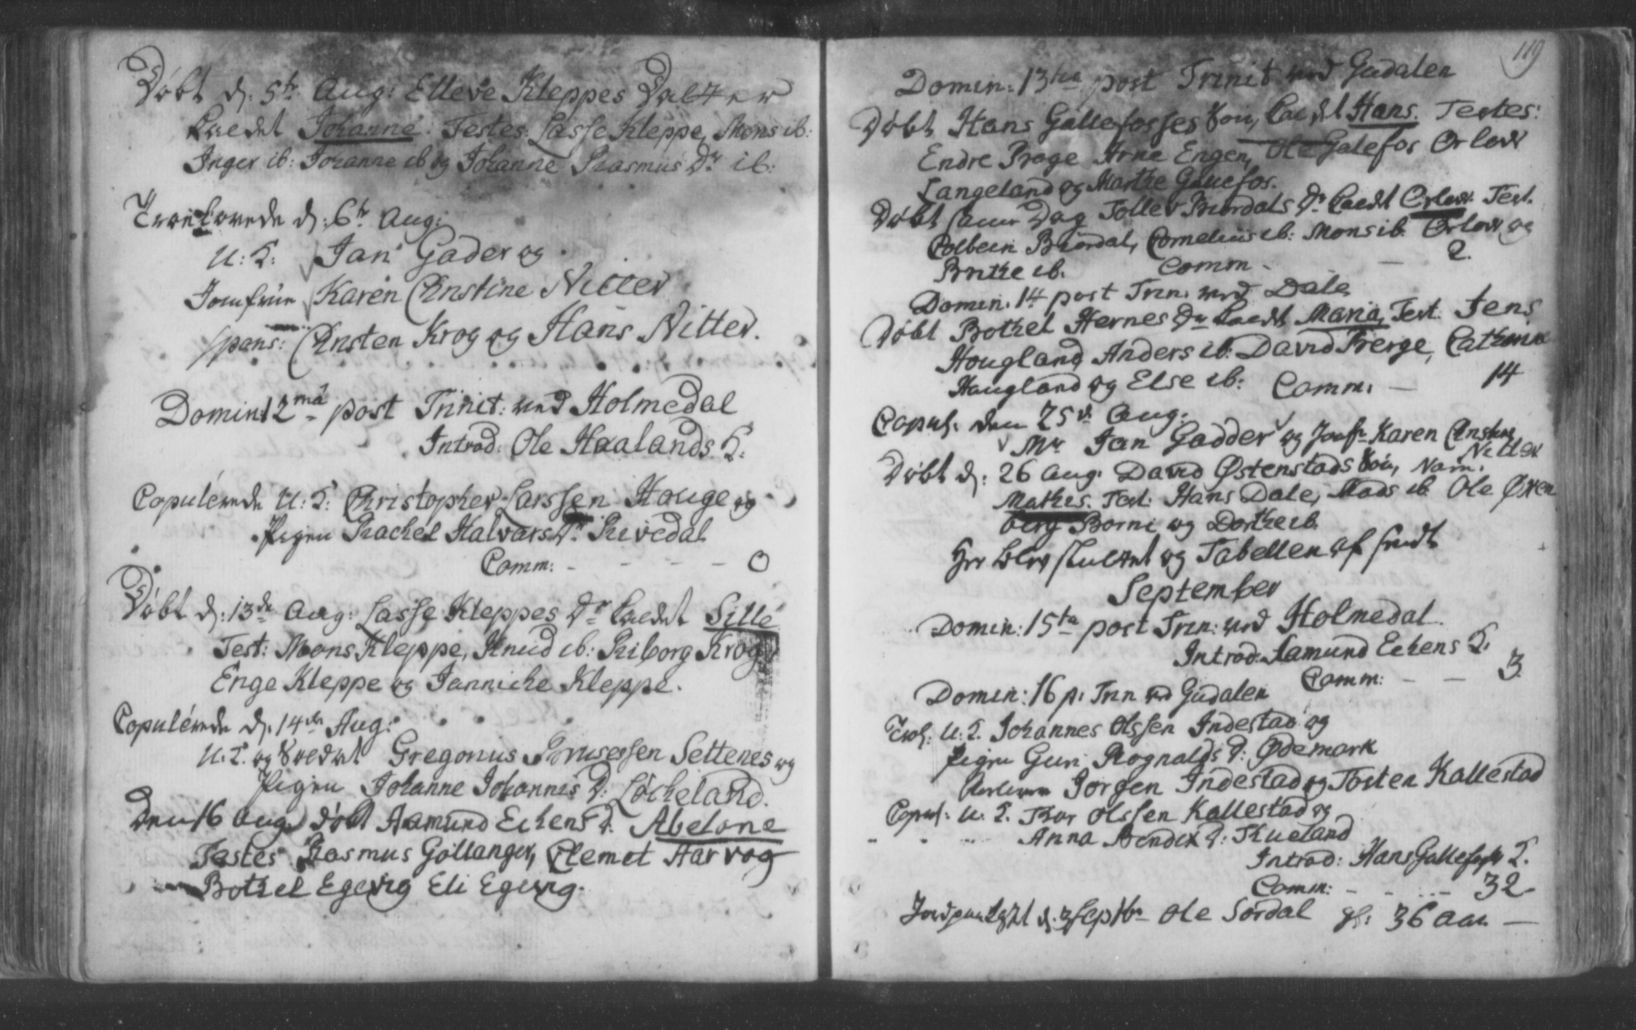 Døbt d. 5te Aug: Elleve Kleppes Datter
kaldet Johanne. Testes: Lasse Kleppe, Mons ib:
Inger ib: Johanne ib og Johanne Rasmus Dr ib:
Troelovede d. 6te Aug:
U: K: Jan Gader og
Jomfrue Karen Christine Nitter
spons: Christen Krog og Hans Nitter.
Domin: 12ma post Trinit: ved Holmedal
Introd: Ole Haalands K:
Copulerede U: K: Christopher Larssen Hauge og
Pigen Rachel Halvars Dr Rivedal
Comm: - - - - 0
Døbt d. 13de Aug: Lasse Kleppes Dr kaldet Sille
Test: Mons Kleppe, Knud ib: Riborg Krog
Enge Kleppe og Jannicke Kleppe.
Copulerede d. 14de Aug:
U. K. og Gregorius Settenes og
Pigen Johanne Johannis D: Løcheland.
Den 16 Aug: døbt Aamund Echens D. Abelone
Testes Rasmus Gollanger, Clemet Aarvog
Bothel Egevig Eli Egevig.
119
Domin: 13tia post Trinit ved Gudalen
Døbt Hans Gallefosses Søn, kaldt Hans. Testes:
Endre Arne Engen, Ole Galefos Orlow
Langeland og Marthe Gallefos.
Døbt samme Dag Tollev Buordals Dr kaldt Test.
Colbein Buordal, Cornelius ib: Mons ib. og
ib. Comm - - 2.
Domin. 14 post Trin. ved Dale
Døbt Bothel Hernes Dr kaldt Maria, Test. Jens
Hougland, Anders ib: David Frerge, Cathrine
Haugland og Else ib: Comm. - 14
Copul. den 25de Aug.
Mr Jan Gadder og Jomfr Karen Christine
Nitter
Døbt d. 26 Aug. David Østenstads Søn, Nom.
Mathes. Test. Hans Dale, Mads ib Ole Øren
berg Borni og Dorthe ib
Her blev sluttet og Tabellen afsendt
September
Domin: 15ta post Trin: ved Holmedal.
Introd. Aamund Echens K.
Comm: - - 3
Domin: 16 p. Trin ved Gudalen
Trol: U. K. Johannes Olssen Indestad og
Pigen Guri Rognalds D: Ødemark
Jørgen Indestad og Tosten Kallestad
Copul. U. K. Thor Olssen Kallestad og
Anna Bendix D: Thueland
Introd: Hans Gallefos K.
Comm: - - - 32
Jordpaakast d. 3 Septbr Ole Sordal gl: 36 Aar